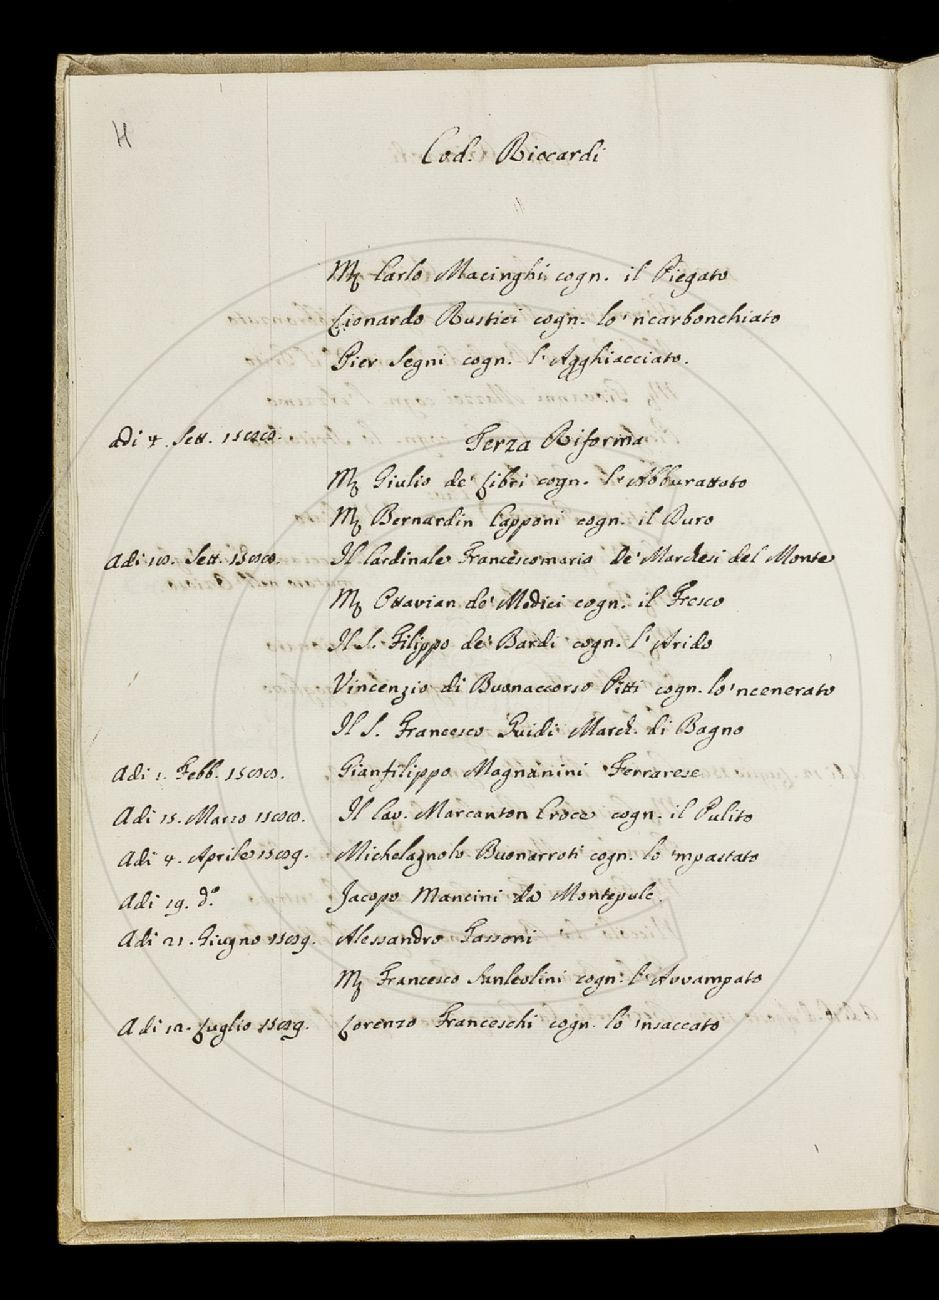 H
Cod. Riccardi
Mʒ Carlo Macinghi cogn. il Piegato
Lionardo Rustici cogn. lo'ncarbonchiato
Pier Segni cogn. l'Agghiacciato.
adi 4. Sett. Terza Riforma
Mʒ Giulio de' Libri cogn. l'Abburattato
Mʒ Bernardin Capponi cogn. il Duro
Adi Sett. Il Cardinale Francescomaria de' Marchesi del Monte
Mʒ Ottavian de' Medici cogn. il Fresco
Il S. Filippo de' Bardi cogn. l'Arido
Vincenzio di Buonaccorso Pitti cogn. lo'ncenerato
Il S. Francesco Guidi March. di Bagno
Adi 1. Febb. Gianfilippo Magnanini Ferrarese
Adi 15. Marzo Il Cav. Marcanton Croce cogn. il Pulito
Adi 4. Aprile Michelagnolo Buonarroti cogn. lo'mpastato
Adi 19. dº Jacopo Mancini da Montepulc.
Adi 21. Giugno Alessandro Tassoni
Mʒ Francesco Sanleolini cogn. l'Avvampato
Adi Luglio Lorenzo Franceschi cogn. lo'nsaccato